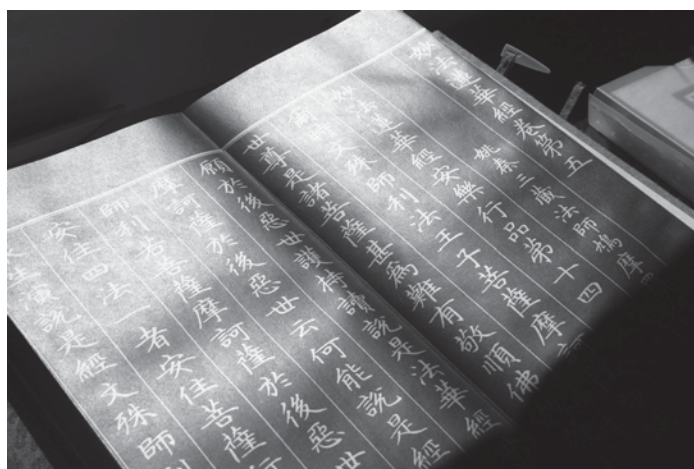 妙法蓮華經卷第五
姚秦三藏法師鳩摩
妙法蓮華經安樂行品第十四
文殊師利法王子菩薩摩訶
世尊是諸菩薩甚爲難有敬順佛
願於後惡世護持讀說是法華經
摩訶薩於後惡世云何能說是經
師利若菩薩摩訶薩於後惡世
安住四法一者安住菩薩行
生演說是經文殊師利